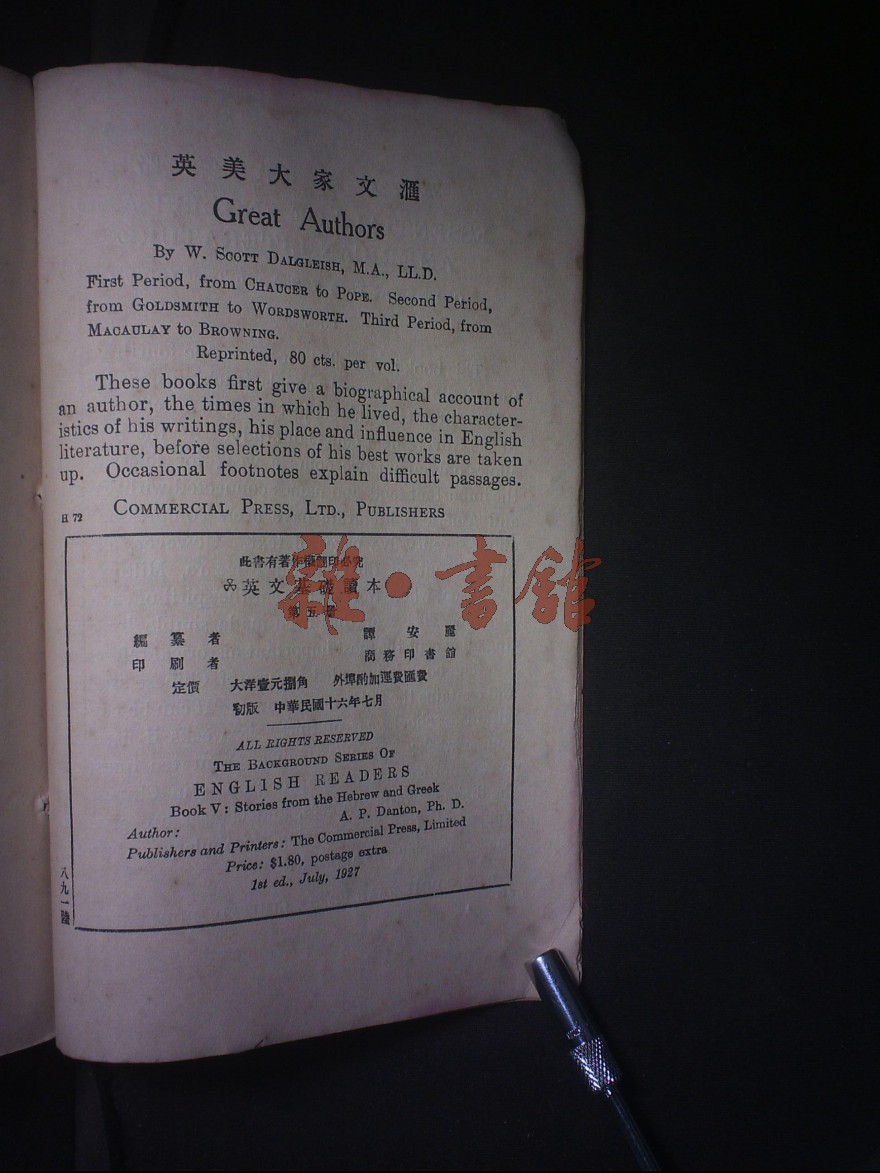 英美大家文滙
Great Authors
By W. SCOTT DALGLEISH, M.A., LL.D.
First Period, from CHAUCER to POPE. Second Period,
from GOLDSMITH to WORDSWORTH. Third Period, from
MACAULAY to BROWNING.
Reprinted, 80 cts. per vol.
These books first give a biographical account of
an author, the times in which he lived, the character-
istics of his writings, his place and influence in English
literature, before selections of his best works are taken
up. Occasional footnotes explain difficult passages.
H 72 COMMERCIAL PRESS, LTD., PUBLISHERS
此書有著作權翻印必究
英文基礎讀本
第五冊
編纂者 譚安麗
印刷者 商務印書館
定價 大洋壹元捌角 外埠酌加運費匯費
初版 中華民國十六年七月
ALL RIGHTS RESERVED
THE BACKGROUND SERIES OF
ENGLISH READERS
Book V: Stories from the Hebrew and Greek
Author: A. P. Danton, Ph. D.
Publishers and Printers: The Commercial Press, Limited
Price: $1.80, postage extra
1st ed., July, 1927
八九一陸
雜·書館